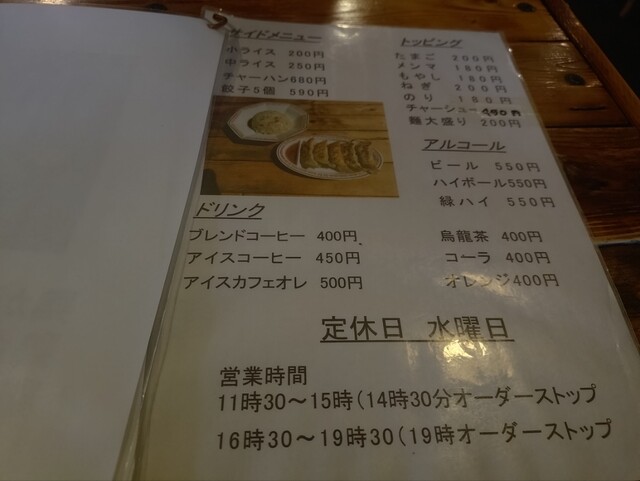 サイドメニュー
小ライス 200円
中ライス 250円
チャーハン680円
餃子5個 590円
トッピング
たまご 200円
メンマ 180円
もやし 180円
ねぎ 200円
のり 180円
チャーシュー
麺大盛り 200円
アルコール
ビール 550円
ハイボール550円
緑ハイ 550円
ドリンク
ブレンドコーヒー 400円
アイスコーヒー 450円
アイスカフェオレ 500円
烏龍茶 400円
コーラ 400円
オレンジ400円
定休日 水曜日
営業時間
11時30～15時(14時30分オーダーストップ
16時30～19時30(19時オーダーストップ